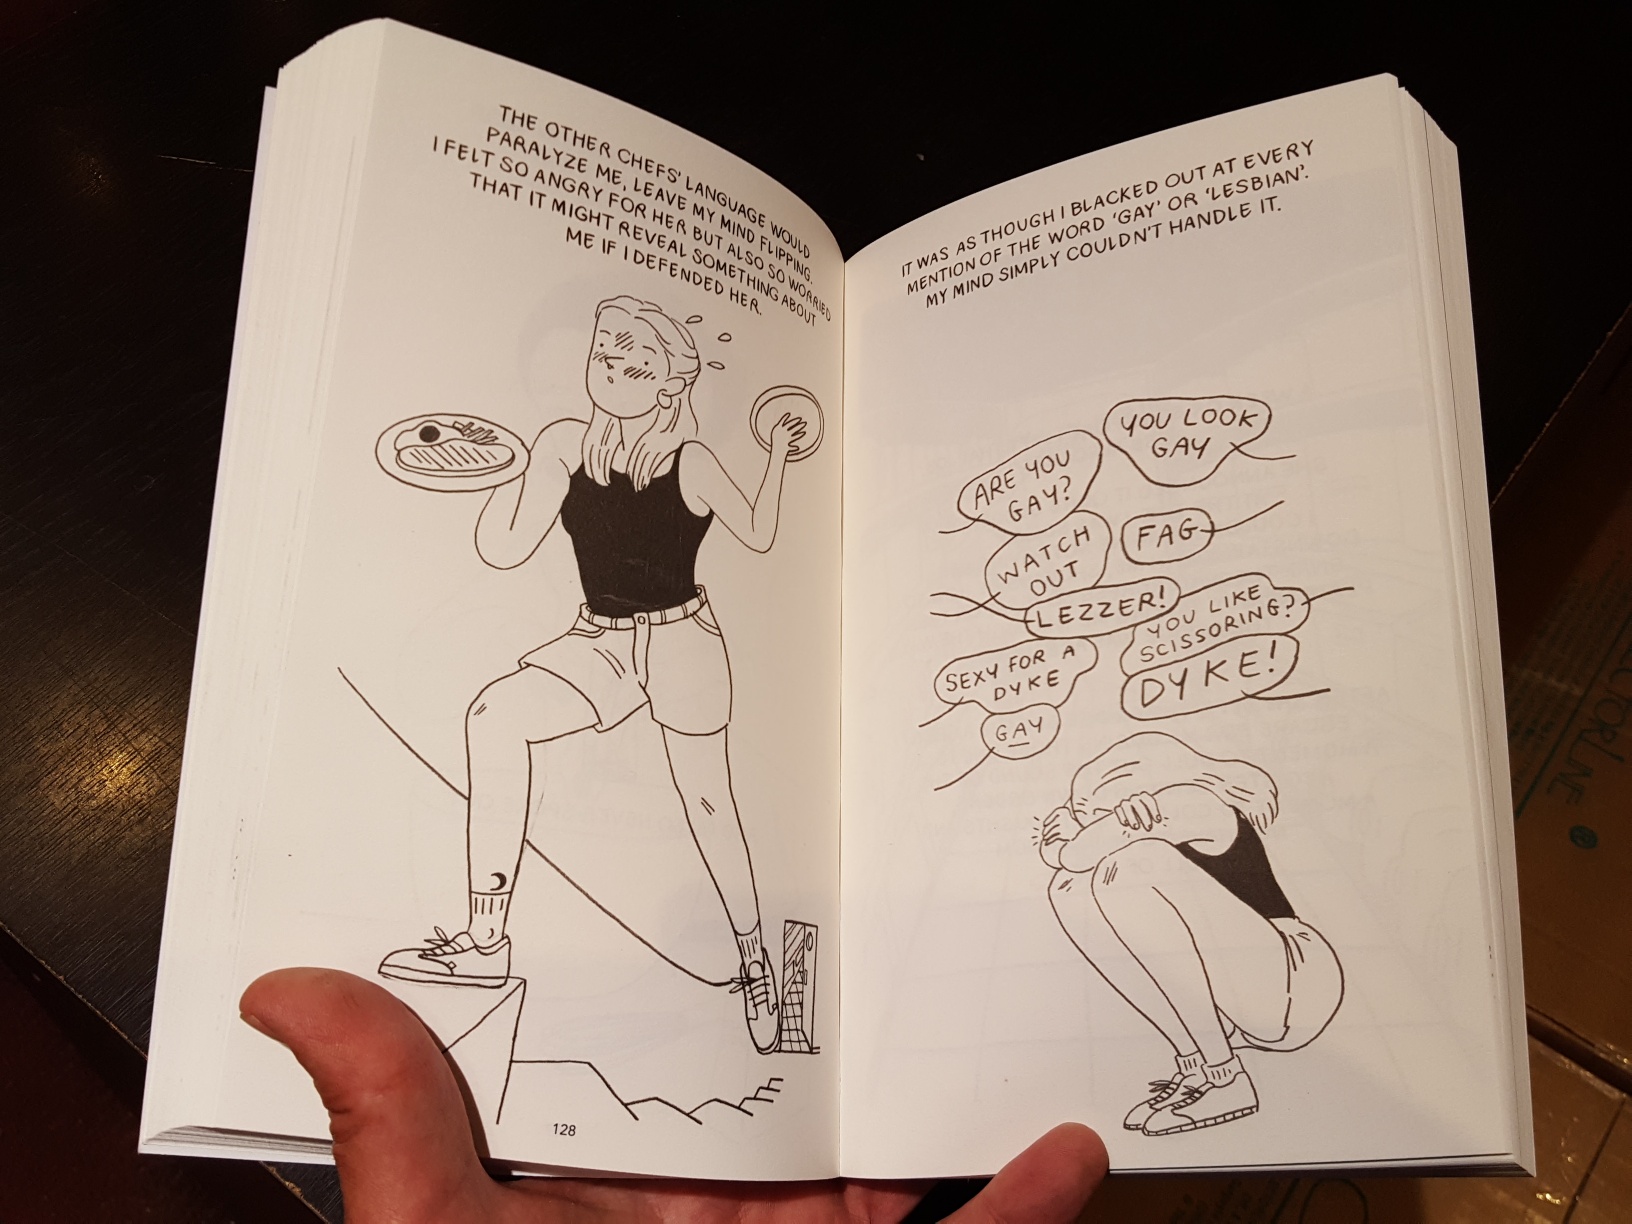 THE OTHER CHEFS' LANGUAGE WOULD
PARALYZE ME, LEAVE MY MIND FLIPPING.
I FELT SO ANGRY FOR HER BUT ALSO SO WORRIED
THAT IT MIGHT REVEAL SOMETHING ABOUT
ME IF I DEFENDED HER.
128
IT WAS AS THOUGH I BLACKED OUT AT EVERY
MENTION OF THE WORD 'GAY' OR 'LESBIAN'.
MY MIND SIMPLY COULDN'T HANDLE IT.
YOU LOOK
GAY
ARE YOU
GAY?
WATCH
OUT
FAG
LEZZER!
YOU LIKE
SCISSORING?
SEXY FOR A
DYKE
DYKE!
GAY